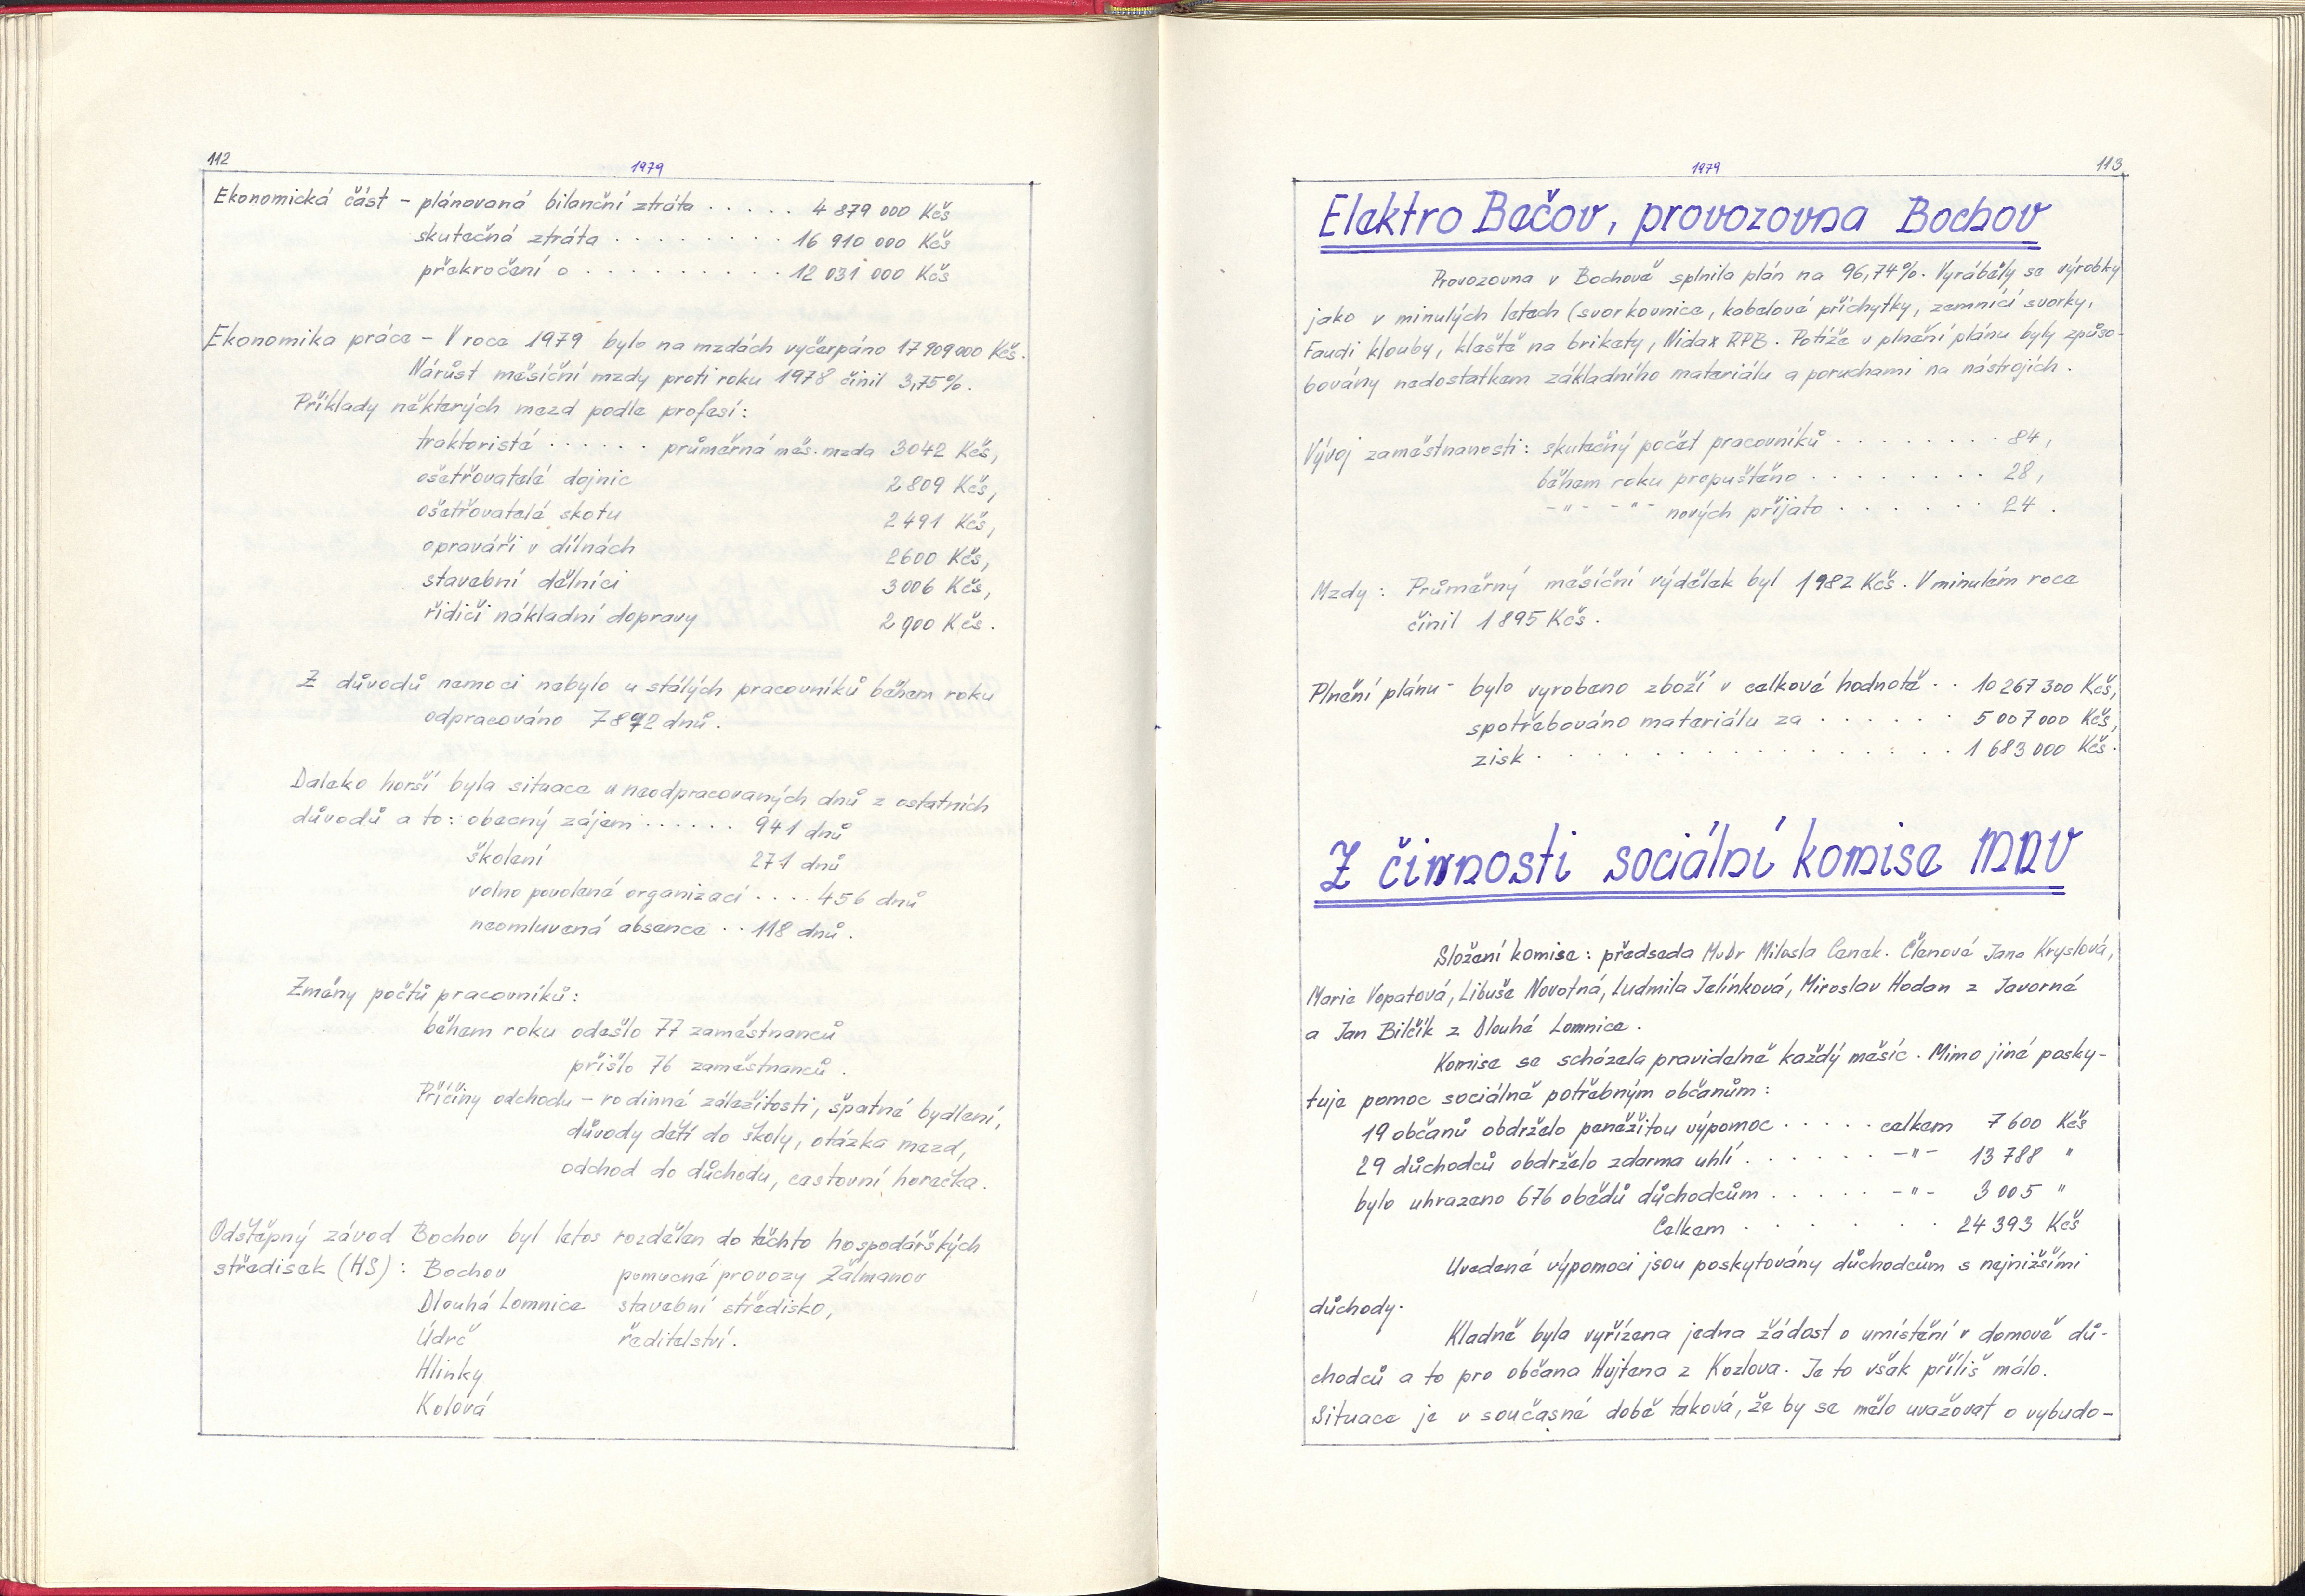 112
1979
Ekonomická část - plánovaná bilanční ztráta . . . . . 4 879 000 Kčs
skutečná ztráta . . . . . . . . 16 910 000 Kčs
překročení o . . . . . . . . . 12 031 000 Kčs
Ekonomika práce - V roce 1979 bylo na mzdách vyčerpáno 17 909 000 Kčs.
Nárůst měsíční mzdy proti roku 1978 činil 3,75%.
Příklady některých mezd podle profesí:
traktoristé . . . . . . průměrná měs. mzda 3042 Kčs,
ošetřovatelé dojnic 2809 Kčs,
ošetřovatelé skotu 2491 Kčs,
opraváři v dílnách 2600 Kčs,
stavební dělníci 3006 Kčs,
řidiči nákladní dopravy 2900 Kčs.
Z důvodů nemoci nebylo u stálých pracovníků během roku
odpracováno dnů.
Daleko horší byla situace u neodpracovaných dnů z ostatních
důvodů a to: obecný zájem . . . . . . 941 dnů
školení 271 dnů
volno povolené organizací . . . . 456 dnů
neomluvená absence . . 118 dnů.
Změny počtů pracovníků:
během roku odešlo 77 zaměstnanců
přišlo 76 zaměstnanců.
Příčiny odchodu - rodinné záležitosti, špatné bydlení,
důvody dětí do školy, otázka mezd,
odchod do důchodu, cestovní horečka.
Odštěpný závod Bochov byl letos rozdělen do těchto hospodářských
středisek (HS): Bochov pomocné provozy Žalmanov
Dlouhá Lomnice stavební středisko,
Údrč ředitelství.
Hlinky
Kolová
1979
113
Elektro Bečov, provozovna Bochov
Provozovna v Bochově splnila plán na 96,74%. Vyráběly se výrobky
jako v minulých letech (svorkovnice, kabelové příchytky, zemnící svorky,
Faudi klouby, kleště na brikety, Nidax RPB. Potíže v plnění plánu byly způso-
bovány nedostatkem základního materiálu a poruchami na nástrojích.
Vývoj zaměstnanosti: skutečný počet pracovníků . . . . . . . . 84,
během roku propuštěno . . . . . . . . 28,
-"- -"- nových přijato . . . . . . 24.
Mzdy: Průměrný měsíční výdělek byl 1982 Kčs. V minulém roce
činil 1895 Kčs.
Plnění plánu - bylo vyrobeno zboží v celkové hodnotě . . 10 267 300 Kčs,
spotřebováno materiálu za . . . . . . 5 007 000 Kčs,
zisk . . . . . . . . . . . . . . 1 683 000 Kčs.
Z činnosti sociální komise MNV
Složení komise: předseda MuDr Milosla Cenek. Členové Jana Kryslová,
Marie Vopatová, Libuše Novotná, Ludmila Jelínková, Miroslav Hodan z Javorné
a Jan Bilčík z Dlouhé Lomnice.
Komise se scházela pravidelně každý měsíc. Mimo jiné posky-
tuje pomoc sociálně potřebným občanům:
19 občanů obdrželo peněžitou výpomoc . . . . . celkem 7 600 Kčs
29 důchodců obdrželo zdarma uhlí . . . . . . -"- 13 788 "
bylo uhrazeno 676 obědů důchodcům . . . . . -"- 3 005 "
Celkem . . . . . . 24 393 Kčs
Uvedené výpomoci jsou poskytovány důchodcům s nejnižšími
důchody.
Kladně byla vyřízena jedna žádost o umístění v domově dů-
chodců a to pro občana Hujtena z Kozlova. Je to však příliš málo.
Situace je v současné době taková, že by se mělo uvažovat o vybudo-